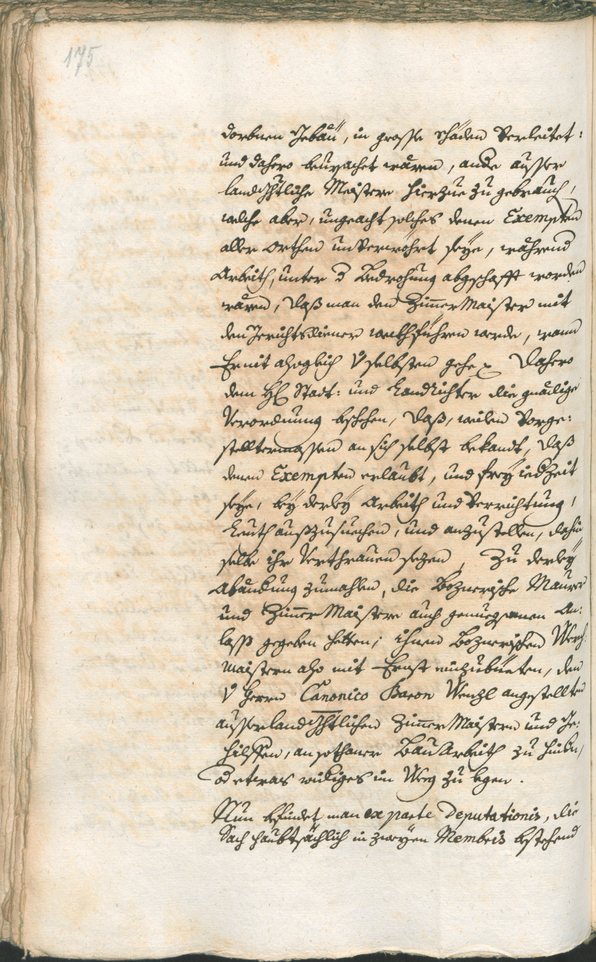 175
dorbnen Gebäu, in grosse schäden verleitet:
und dahero verursachet wären, ande ausser
landtgerichtliche Maistere hierzue zu gebrauch,
welche aber, ungeacht solches denen Exempten
aller orthen unverwöhrt seye, während
Arbeith, unter d Bedrohung abgeschafft worden
wären, daß man den Zimmer Maister mit
den Gerichtsdiener wekhführen werde, wann
Er nit alsogleich selbsten gehe. Dahero
dem H. Statt: und Landrichter die gnädige
Verordnung beschehen, daß, weilen vorge:
stelltermassen an sich selbst bekandt, daß
denen Exempten erlaubt, und frey iedzeit
seye, bey derley Arbeith und Verrichtung,
Leuth auszusuechen, und anzustellen, dahin
selbe ihr Verthrauen sezen, Zu derley
Abändung zumahlen, die Boznerische Maurer
und Zimmer Maistere auch genuegsamen An:
lass gegeben hetten; ihnen Boznerischen Werch
Maistern also mit Ernst einzubieten, den
v Herrn Canonico Baron Wenzl angestellten
ausserlandtgerichtlichen Zimmer Maistern und Ge:
hilffen, an sothaner Bau Arbeith zu hindern,
od etwas widriges im Weeg zu legen.
Nun befündet man ex parte Deputationis, die
Sach haubtsächlich in zweyen Membris bestehend